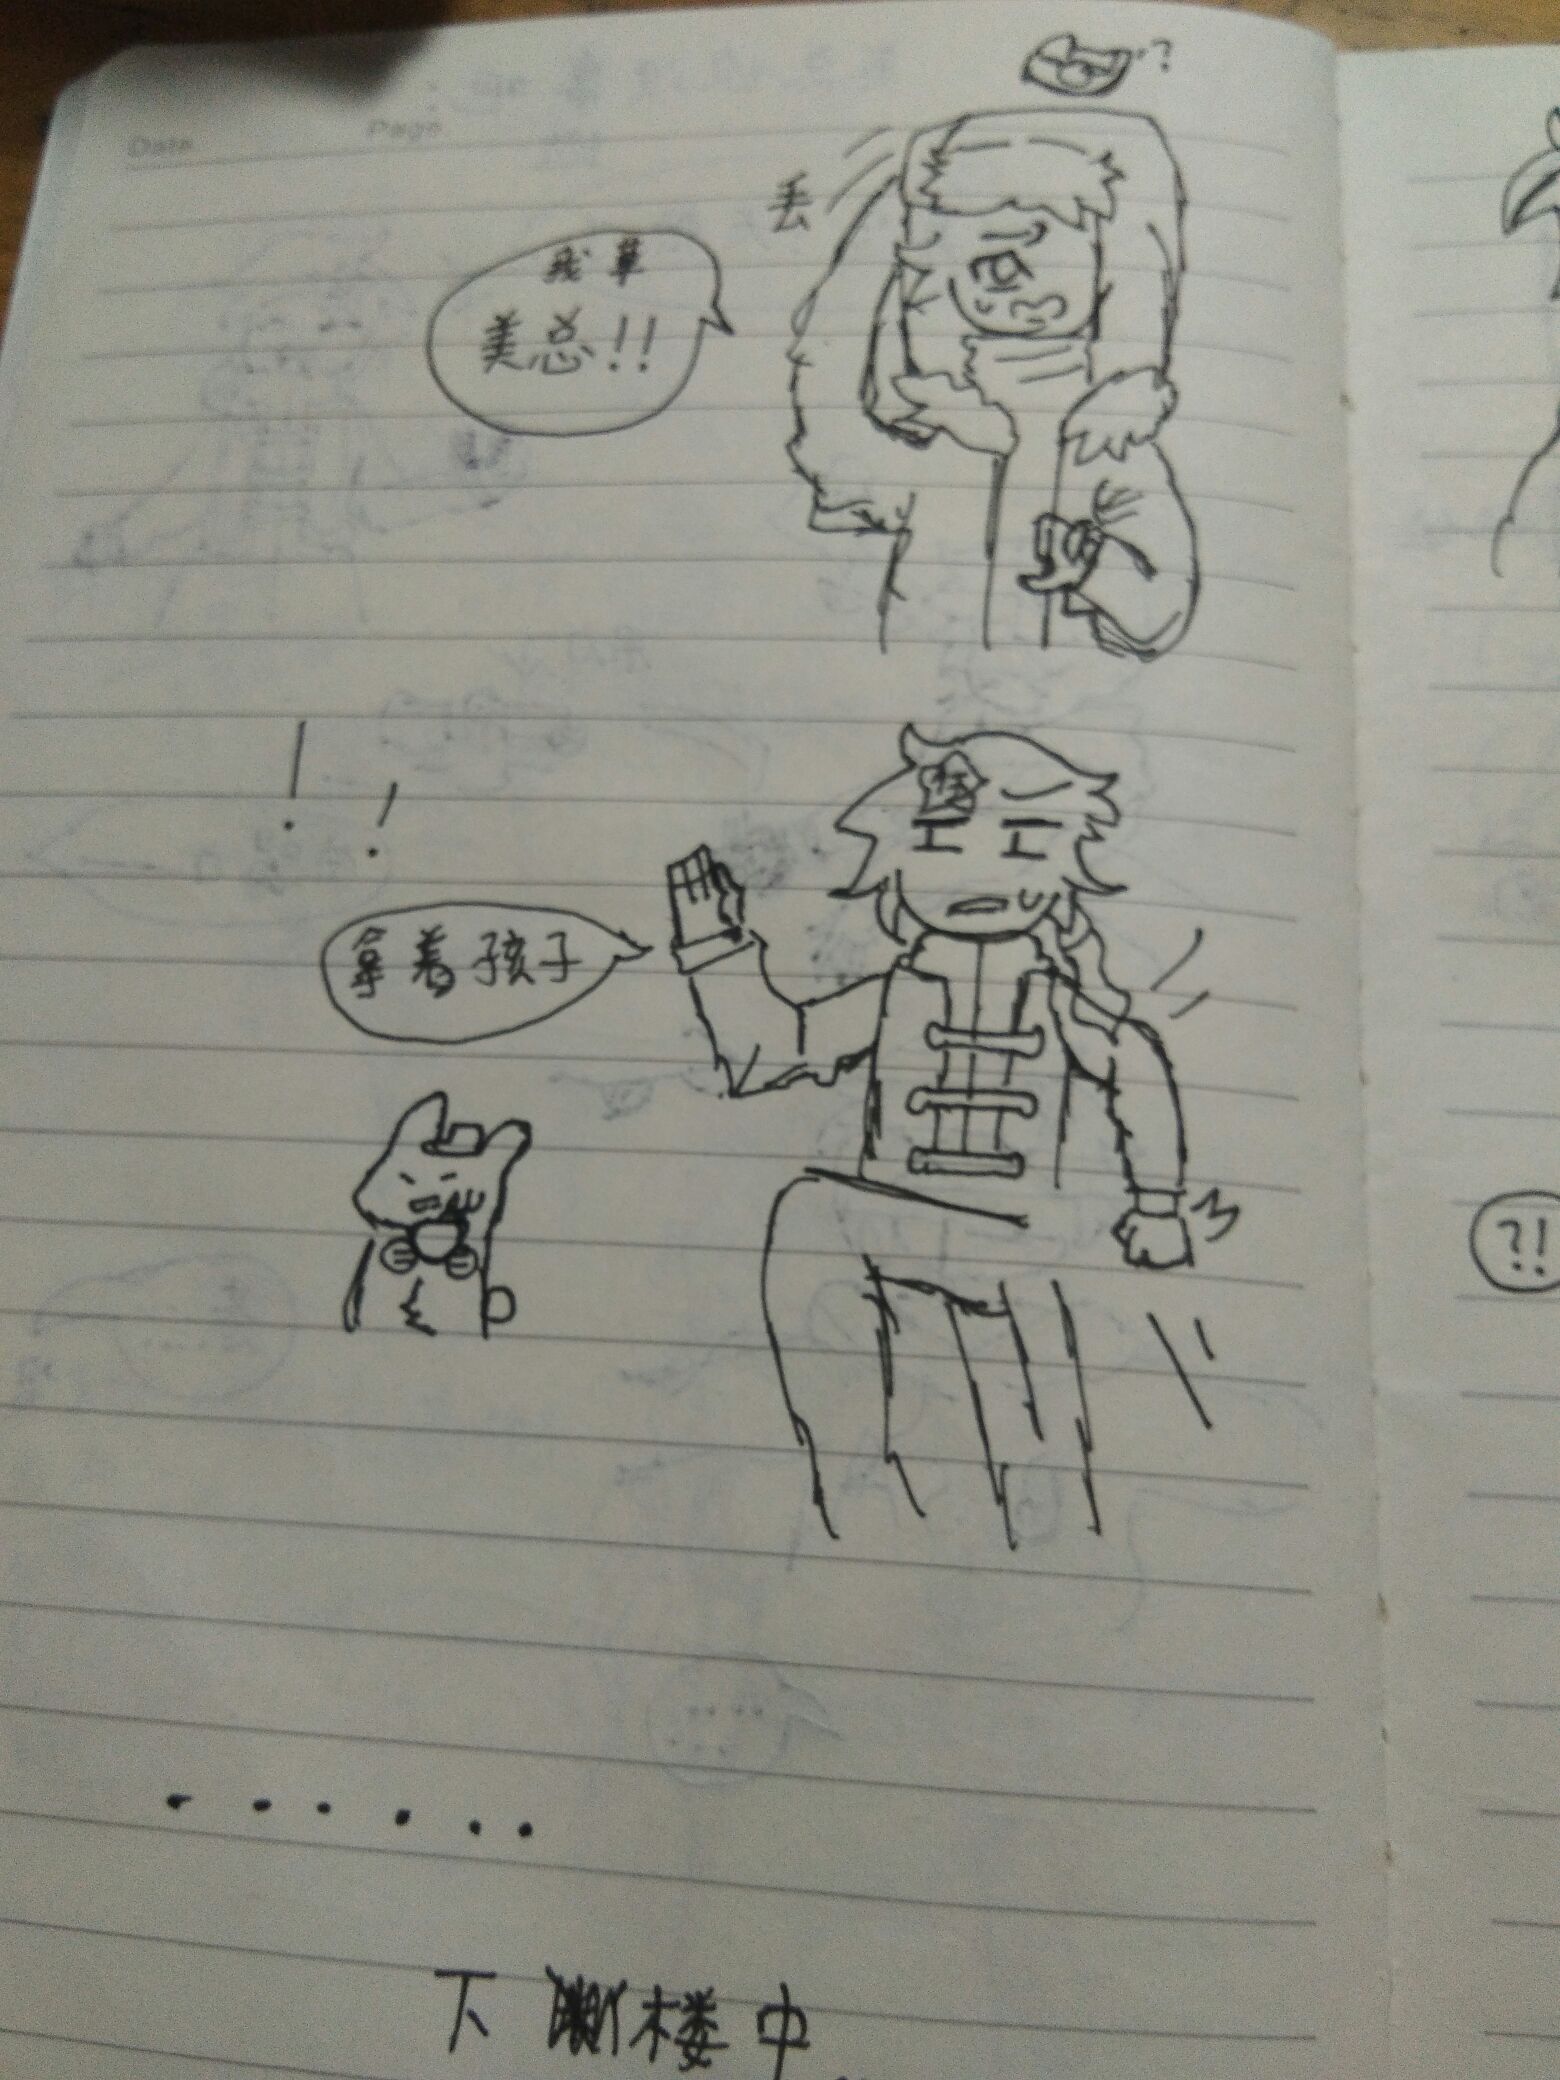 Date Page
?
丢
我草
美总!!
! !
拿着孩子
?!
......
下楼中